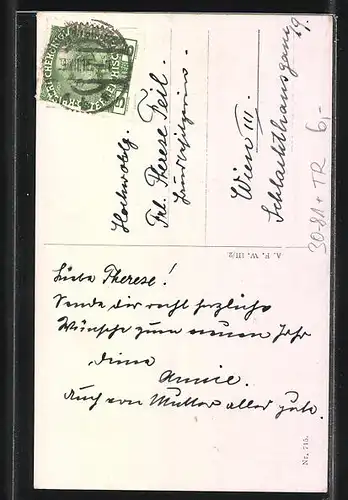 Hochwohlg.
Frl. Therese Feil.
Wien III.
Schlachthausgasse
19.
30-81+TR 6,-
A. F. W. III/2
Liebe Therese!
Sende dir recht herzliche
Wünsche zum neuen Jahr
deine
Annie.
Auch von Mutter alles gute.
Nr. 715.